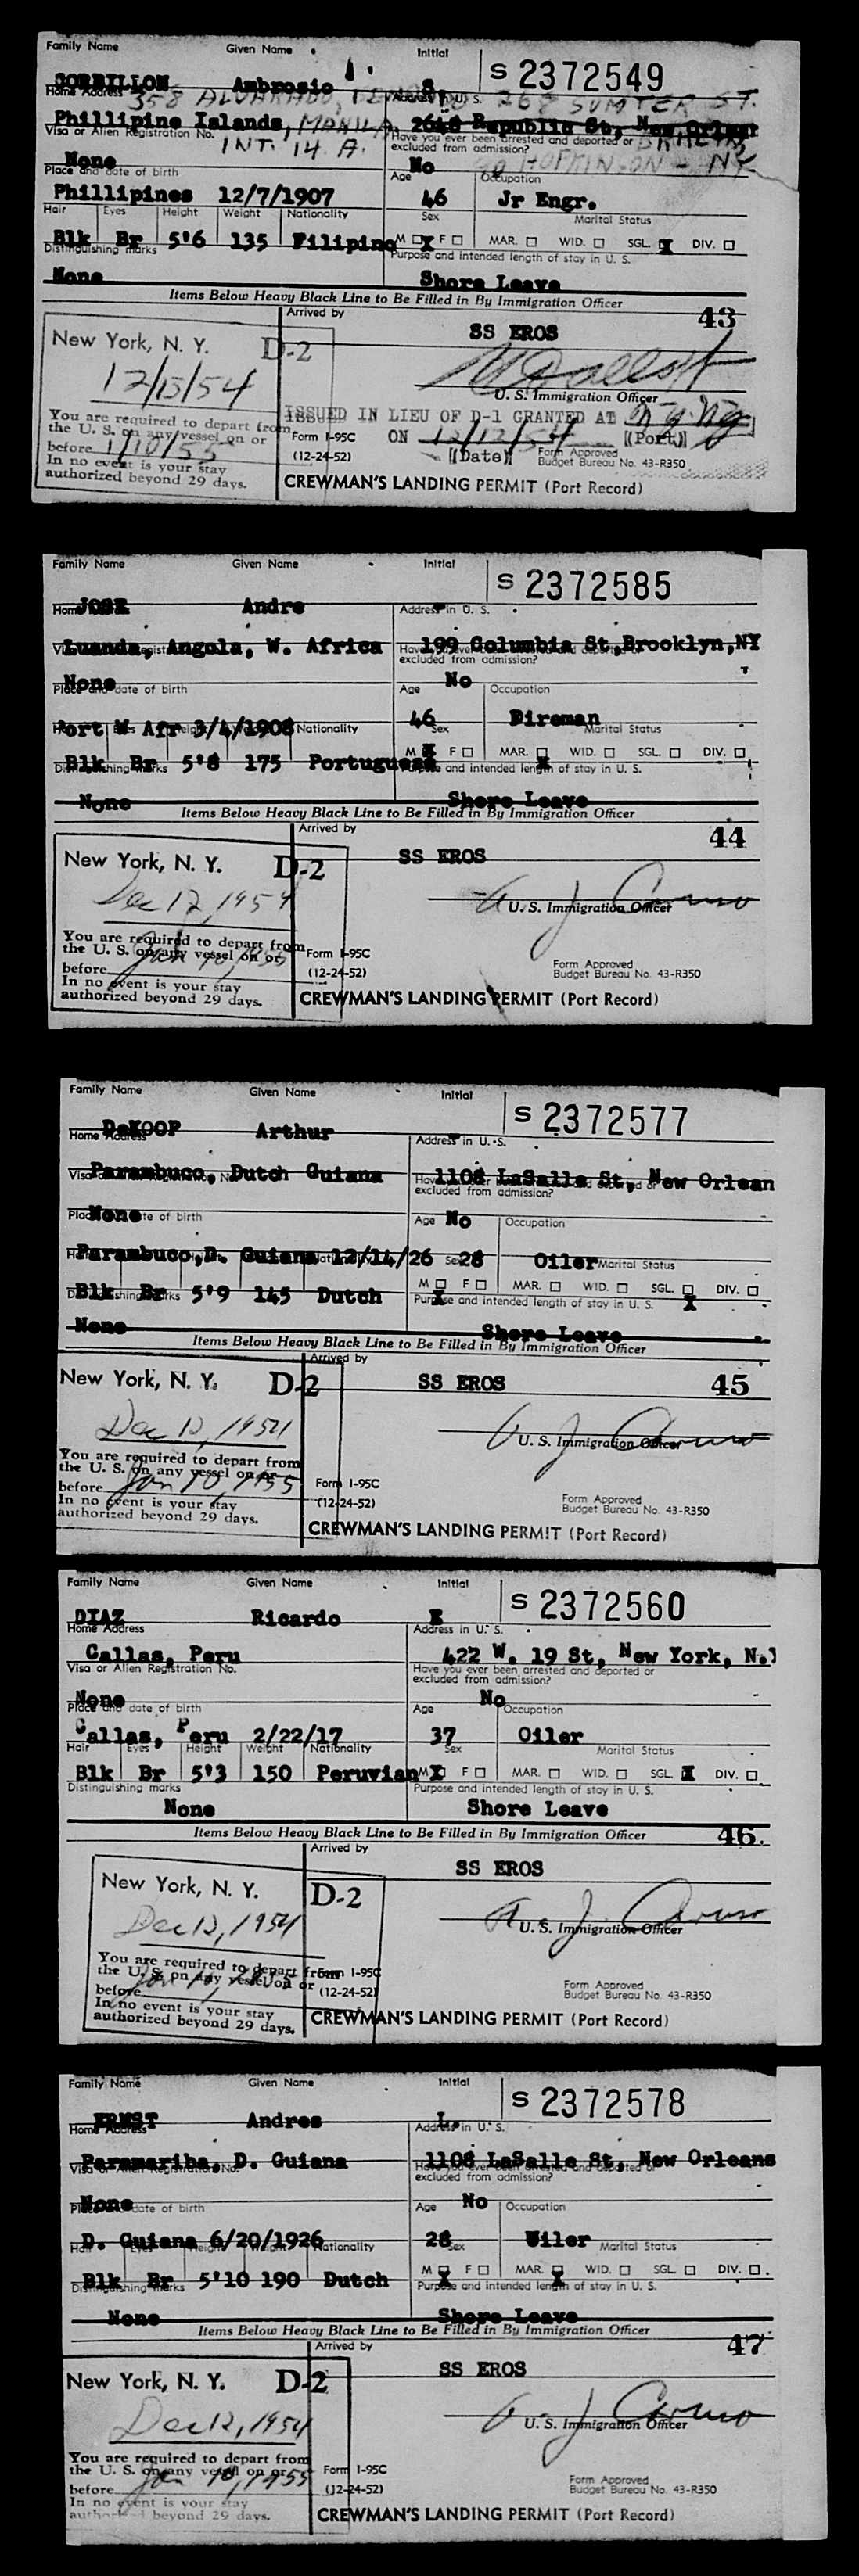 Family Name Given Name Initial S 2372549
CORBILLON Ambrosio S.
Home Address 358 ALVARADO, Address in U. S. 268 SUMTER ST.
Phillipine Islands, MANILA 2648 Republic St, New Orlean
Visa or Alien Registration No. INT. 14 A. Have you ever been arrested and deported or excluded from admission? BKKLYN,
None No HOPKINSON - NY
Place and date of birth Age Occupation
Phillipines 12/7/1907 46 Jr Engr.
Hair Eyes Height Weight Nationality Sex Marital Status
Blk Br 5'6 135 Filipino M X F MAR. WID. SGL. X DIV.
Distinguishing marks Purpose and intended length of stay in U. S.
None Shore Leave
Items Below Heavy Black Line to Be Filled in By Immigration Officer
Arrived by 43
SS EROS
New York, N. Y. D-2
12/13/54
U. S. Immigration Officer
ISSUED IN LIEU OF D-1 GRANTED AT N.Y. NY
ON 12/12/54 (Port)
(Date)
You are required to depart from
the U. S. on any vessel on or
before 1/10/55
In no event is your stay
authorized beyond 29 days.
Form I-95C
(12-24-52)
Form Approved
Budget Bureau No. 43-R350
CREWMAN'S LANDING PERMIT (Port Record)
Family Name Given Name Initial S 2372585
JOSE Andre
Home Address in U. S.
Luanda, Angola, W. Africa 199 Columbia St,Brooklyn,NY
Have you ever been arrested and deported or excluded from admission?
None No
Place and date of birth Age Occupation
Port W Afr 3/4/1908 46 Direman
Nationality Sex Marital Status
Blk Br 5'8 175 Portuguese M X F MAR. X WID. SGL. DIV.
Distinguishing marks Purpose and intended length of stay in U. S.
None Shore Leave
Items Below Heavy Black Line to Be Filled in By Immigration Officer
Arrived by 44
SS EROS
New York, N. Y. D-2
Dec 12, 1954
U. S. Immigration Officer
You are required to depart from
the U. S. on any vessel on or
before Jan 10, 1955
In no event is your stay
authorized beyond 29 days.
Form I-95C
(12-24-52)
Form Approved
Budget Bureau No. 43-R350
CREWMAN'S LANDING PERMIT (Port Record)
Family Name Given Name Initial S 2372577
DeKOOP Arthur
Home Address Address in U. S.
Parambuco, Dutch Guiana 1108 LaSalle St, New Orlean
excluded from admission?
None No
Place and date of birth Age Occupation
Parambuco,D. Guiana 12/14/26 28 Oiler
Sex Marital Status
Blk Br 5'9 145 Dutch M X F MAR. WID. SGL. X DIV.
Distinguishing marks Purpose and intended length of stay in U. S.
None Shore Leave
Items Below Heavy Black Line to Be Filled in By Immigration Officer
Arrived by
SS EROS 45
New York, N. Y. D-2
Dec 12, 1954
U. S. Immigration Officer
You are required to depart from
the U. S. on any vessel on or
before Jan 10, 1955
In no event is your stay
authorized beyond 29 days.
Form I-95C
(12-24-52)
Form Approved
Budget Bureau No. 43-R350
CREWMAN'S LANDING PERMIT (Port Record)
Family Name Given Name Initial S 2372560
DIAZ Ricardo E
Home Address Address in U. S.
Callas, Peru 422 W. 19 St, New York, N.Y
Visa or Alien Registration No. Have you ever been arrested and deported or excluded from admission?
None No
Place and date of birth Age Occupation
Callas, Peru 2/22/17 37 Oiler
Hair Eyes Height Weight Nationality Sex Marital Status
Blk Br 5'3 150 Peruvian M X F MAR. WID. SGL. X DIV.
Distinguishing marks Purpose and intended length of stay in U. S.
None Shore Leave
Items Below Heavy Black Line to Be Filled in By Immigration Officer 46.
Arrived by
SS EROS
New York, N. Y. D-2
Dec 12, 1954
U. S. Immigration Officer
You are required to depart from
the U. S. on any vessel on or
before
In no event is your stay
authorized beyond 29 days.
Form I-95C
(12-24-52)
Form Approved
Budget Bureau No. 43-R350
CREWMAN'S LANDING PERMIT (Port Record)
Family Name Given Name Initial S 2372578
ERNST Andres L.
Home Address Address in U. S.
Paramariba, D. Guiana 1108 LaSalle St, New Orleans
Visa or Alien Registration No. Have you ever been arrested and deported or excluded from admission?
None No
Place and date of birth Age Occupation
D. Guiana 6/20/1926 28 Wiler
Hair Eyes Height Weight Nationality Sex Marital Status
Blk Br 5'10 190 Dutch M X F MAR. X WID. SGL. DIV.
Distinguishing marks Purpose and intended length of stay in U. S.
None Shore Leave
Items Below Heavy Black Line to Be Filled in By Immigration Officer
Arrived by 47
SS EROS
New York, N. Y. D-2
Dec 12, 1954
U. S. Immigration Officer
You are required to depart from
the U. S. on any vessel on or
before Jan 10, 1955
In no event is your stay
authorized beyond 29 days.
Form I-95C
(12-24-52)
Form Approved
Budget Bureau No. 43-R350
CREWMAN'S LANDING PERMIT (Port Record)